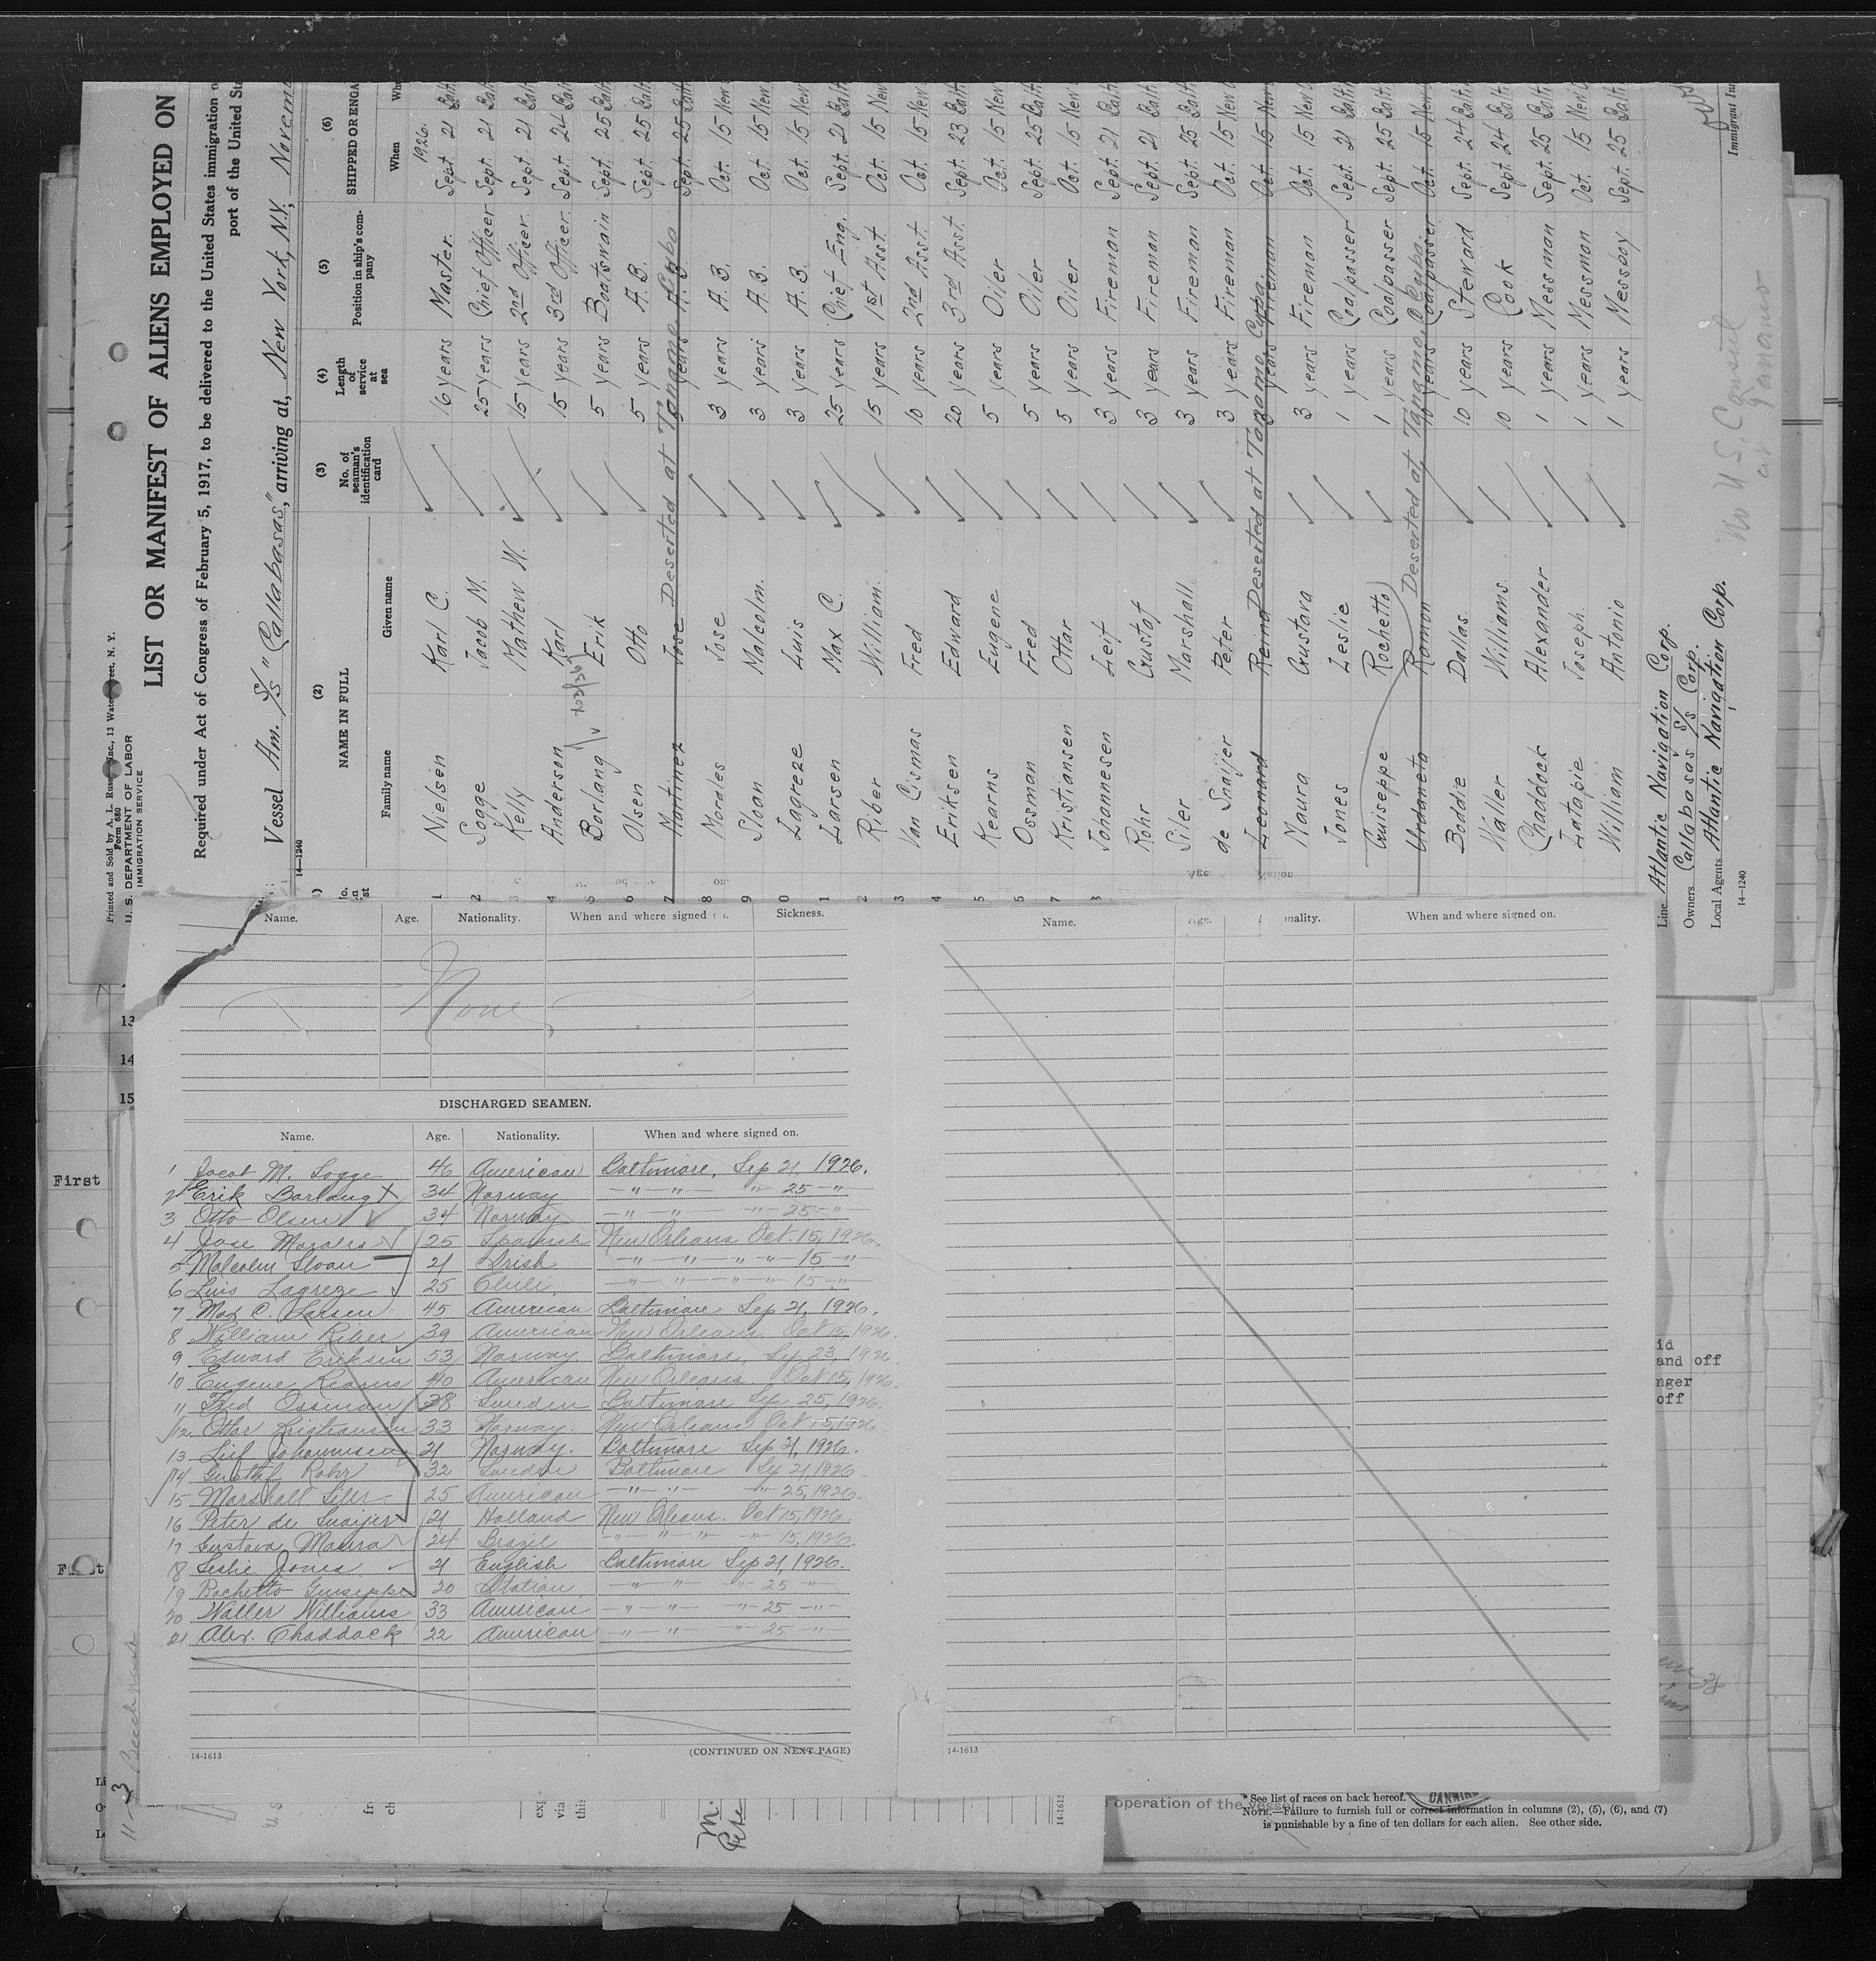 Printed and Sold by A. L. Inc., 13 Water Street, N. Y.
Form 680
U. S. DEPARTMENT OF LABOR
IMMIGRATION SERVICE
LIST OR MANIFEST OF ALIENS EMPLOYED ON
Required under Act of Congress of February 5, 1917, to be delivered to the United States immigration o
port of the United Sta
Vessel Am. S/S "Callabasas," arriving at, New York, N.Y., Novem
14—1240
(2) (3) (4) (5) (6)
NAME IN FULL No. of seaman's identification card Length of service at sea Position in ship's company SHIPPED OR ENGA
Family name Given name When Whe
1926.
1 Nielsen Karl C. 16 years Master. Sept. 21 Balt
2 Sogge Jacob M. 25 years Chief Officer Sept. 21 Balt
Kelly Mathew W. 15 years 2nd Officer. Sept. 21 Balt
4 Anderson Karl 15 years 3rd Officer. Sept. 24 Balt
5 Borlang Erik 5 years Boatswain Sept. 25 Balt
6 Olsen Otto 5 years A. B. Sept. 25 Balt
7 Martinez Jose Deserted at Tanamo Cuba 5 years A. B. Sept. 25 Balt
8 Morales Jose 3 years A. B. Oct. 15 New
9 Sloan Malcolm. 3 years A. B. Oct. 15 New
0 Lagreze Luis 3 years A. B. Oct. 15 New
1 Larsen Max C. 25 years Chief Eng. Sept. 21 Balt
2 Riber William. 15 years 1st Asst. Oct. 15 New
3 Van Cismas Fred 10 years 2nd Asst. Oct. 15 New
4 Eriksen Edward 20 years 3rd Asst. Sept. 23 Balt
5 Kearns Eugene 5 years Oiler Oct. 15 New
6 Ossman Fred 5 years Oiler Sept. 25 Balt
7 Kristiansen Ottar 5 years Oiler Oct. 15 New
8 Johannesen Leif 3 years Fireman Sept. 21 Balt
Rohr Gustaf 3 years Fireman Sept. 21 Balt
Siler Marshall 3 years Fireman Sept. 25 Balt
de Snaijer Peter 3 years Fireman Oct. 15 New
Leonard Deserted at Tanamo Cuba. 3 years Fireman Oct. 15 New
Maura Gustava 3 years Fireman Oct. 15 New
Jones Leslie 1 years Coalpasser Sept. 21 Balt
Guiseppe Rochetto 1 years Coalpasser Sept. 25 Balt
Urdaneta Ramon Deserted at Tanamo Cuba. 10 years Coalpasser Oct. 15 New
Boddie Dallas. 10 years Steward Sept. 24 Balt
Waller Williams. 10 years Cook Sept. 24 Balt
Chaddock Alexander 1 years Messman Sept. 25 Balt
Latapie Joseph. 1 years Messman Oct. 15 New
William Antonio 1 years Messboy Sept. 25 Balt
Line Atlantic Navigation Corp.
Owners. Callabasas S/S Corp.
Local Agents. Atlantic Navigation Corp.
14—1240
No U.S. Consul
at Tanamo
Immigrant In
Name. Age. Nationality. When and where signed on. Sickness.
None
DISCHARGED SEAMEN.
Name. Age. Nationality. When and where signed on.
1 Jacob M. Sogge 46 American Baltimore, Sep 21, 1926.
2 Erik Borlaug 34 Norway —"— —"— —"— 25 —"—
3 Otto Olsen 34 Norway —"— —"— —"— 25 —"—
4 Jose Morales 25 Spanish New Orleans Oct 15, 1926.
5 Malcolm Sloan 21 Irish —"— —"— —"— —"— 15 —"—
6 Luis Lagreze 25 Chile. —"— —"— —"— —"— 15 —"—
7 Max C. Larsen 45 American Baltimore Sep 21, 1926.
8 William Riber 39 American New Orleans Oct 15, 1926.
9 Edward Eriksen 53 Norway Baltimore, Sep 23, 1926
10 Eugene Kearns 40 American New Orleans Oct 15, 1926.
11 Fred Ossman 38 Sweden Baltimore Sep 25, 1926.
12. Ottar Kristiansen 33 Norway New Orleans Oct 15, 1926.
13 Leif Johannesen 21 Norway. Baltimore Sep 21, 1926.
14 Gustaf Rohr 32 Sweden Baltimore Sep 21, 1926
15 Marshall Siler 25 American —"— —"— —"— 25, 1926.
16 Peter de Snayer 21 Holland New Orleans. Oct 15, 1926.
17 Gustava Maura 24 Brazil —"— —"— —"— —"— 15, 1926.
18 Leslie Jones 21 English Baltimore Sep 21, 1926.
19 Rochetto Guiseppe 20 Italian —"— —"— —"— 25 —"—
20 Waller Williams 33 American —"— —"— —"— 25 —"—
21 Alex. Chaddock 22 American —"— —"— —"— 25 —"—
14-1613 (CONTINUED ON NEXT PAGE)
Name. Age. nality. When and where signed on.
14-1613
13
14
15
First
First
id
and off
nger
off
11—3 Beechhurst
operation of the vessel
* See list of races on back hereof.
NOTE.—Failure to furnish full or correct information in columns (2), (5), (6), and (7)
is punishable by a fine of ten dollars for each alien. See other side.
14-1613